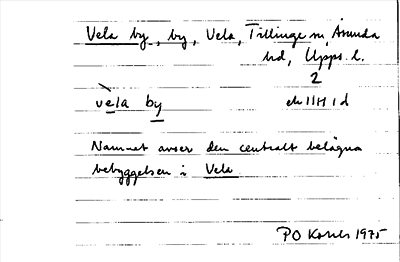 Vela by, by, Vela, Tillinge sn, Åsunda
hd, Upps. l.
2
vèla by ek 11H 1 d
Namnet avser den centralt belägna
bebyggelsen i Vela.
PO 1975